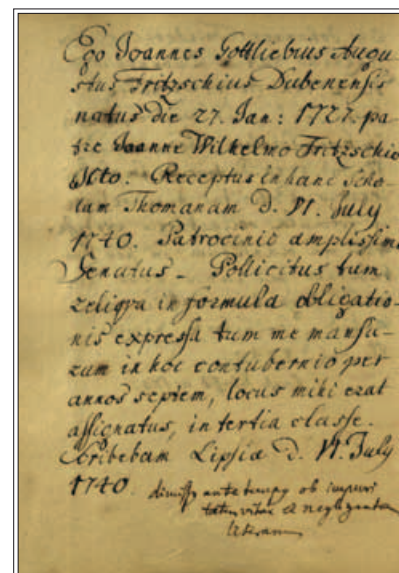 Ego Joannes Gottliebius Augu
stus Fritzschius Dubenensis
natus die 27. Jan: 1727. pa
tre Joanne Wilhelmo Fritzschio
Receptus in hanc Scho
lam Thomanam d. July
1740. Patrocinio amplissimi
Senatus. Pollicitus tum
reliqva in formula obligatio-
nis expressa tum me mansu-
rum in hoc contubernio per
annos septem, locus mihi erat
assignatus, in tertia classe.
Scribebam Lipsiæ d. July
1740. ante tempus ob impuri
tatem vitae & negligentiam